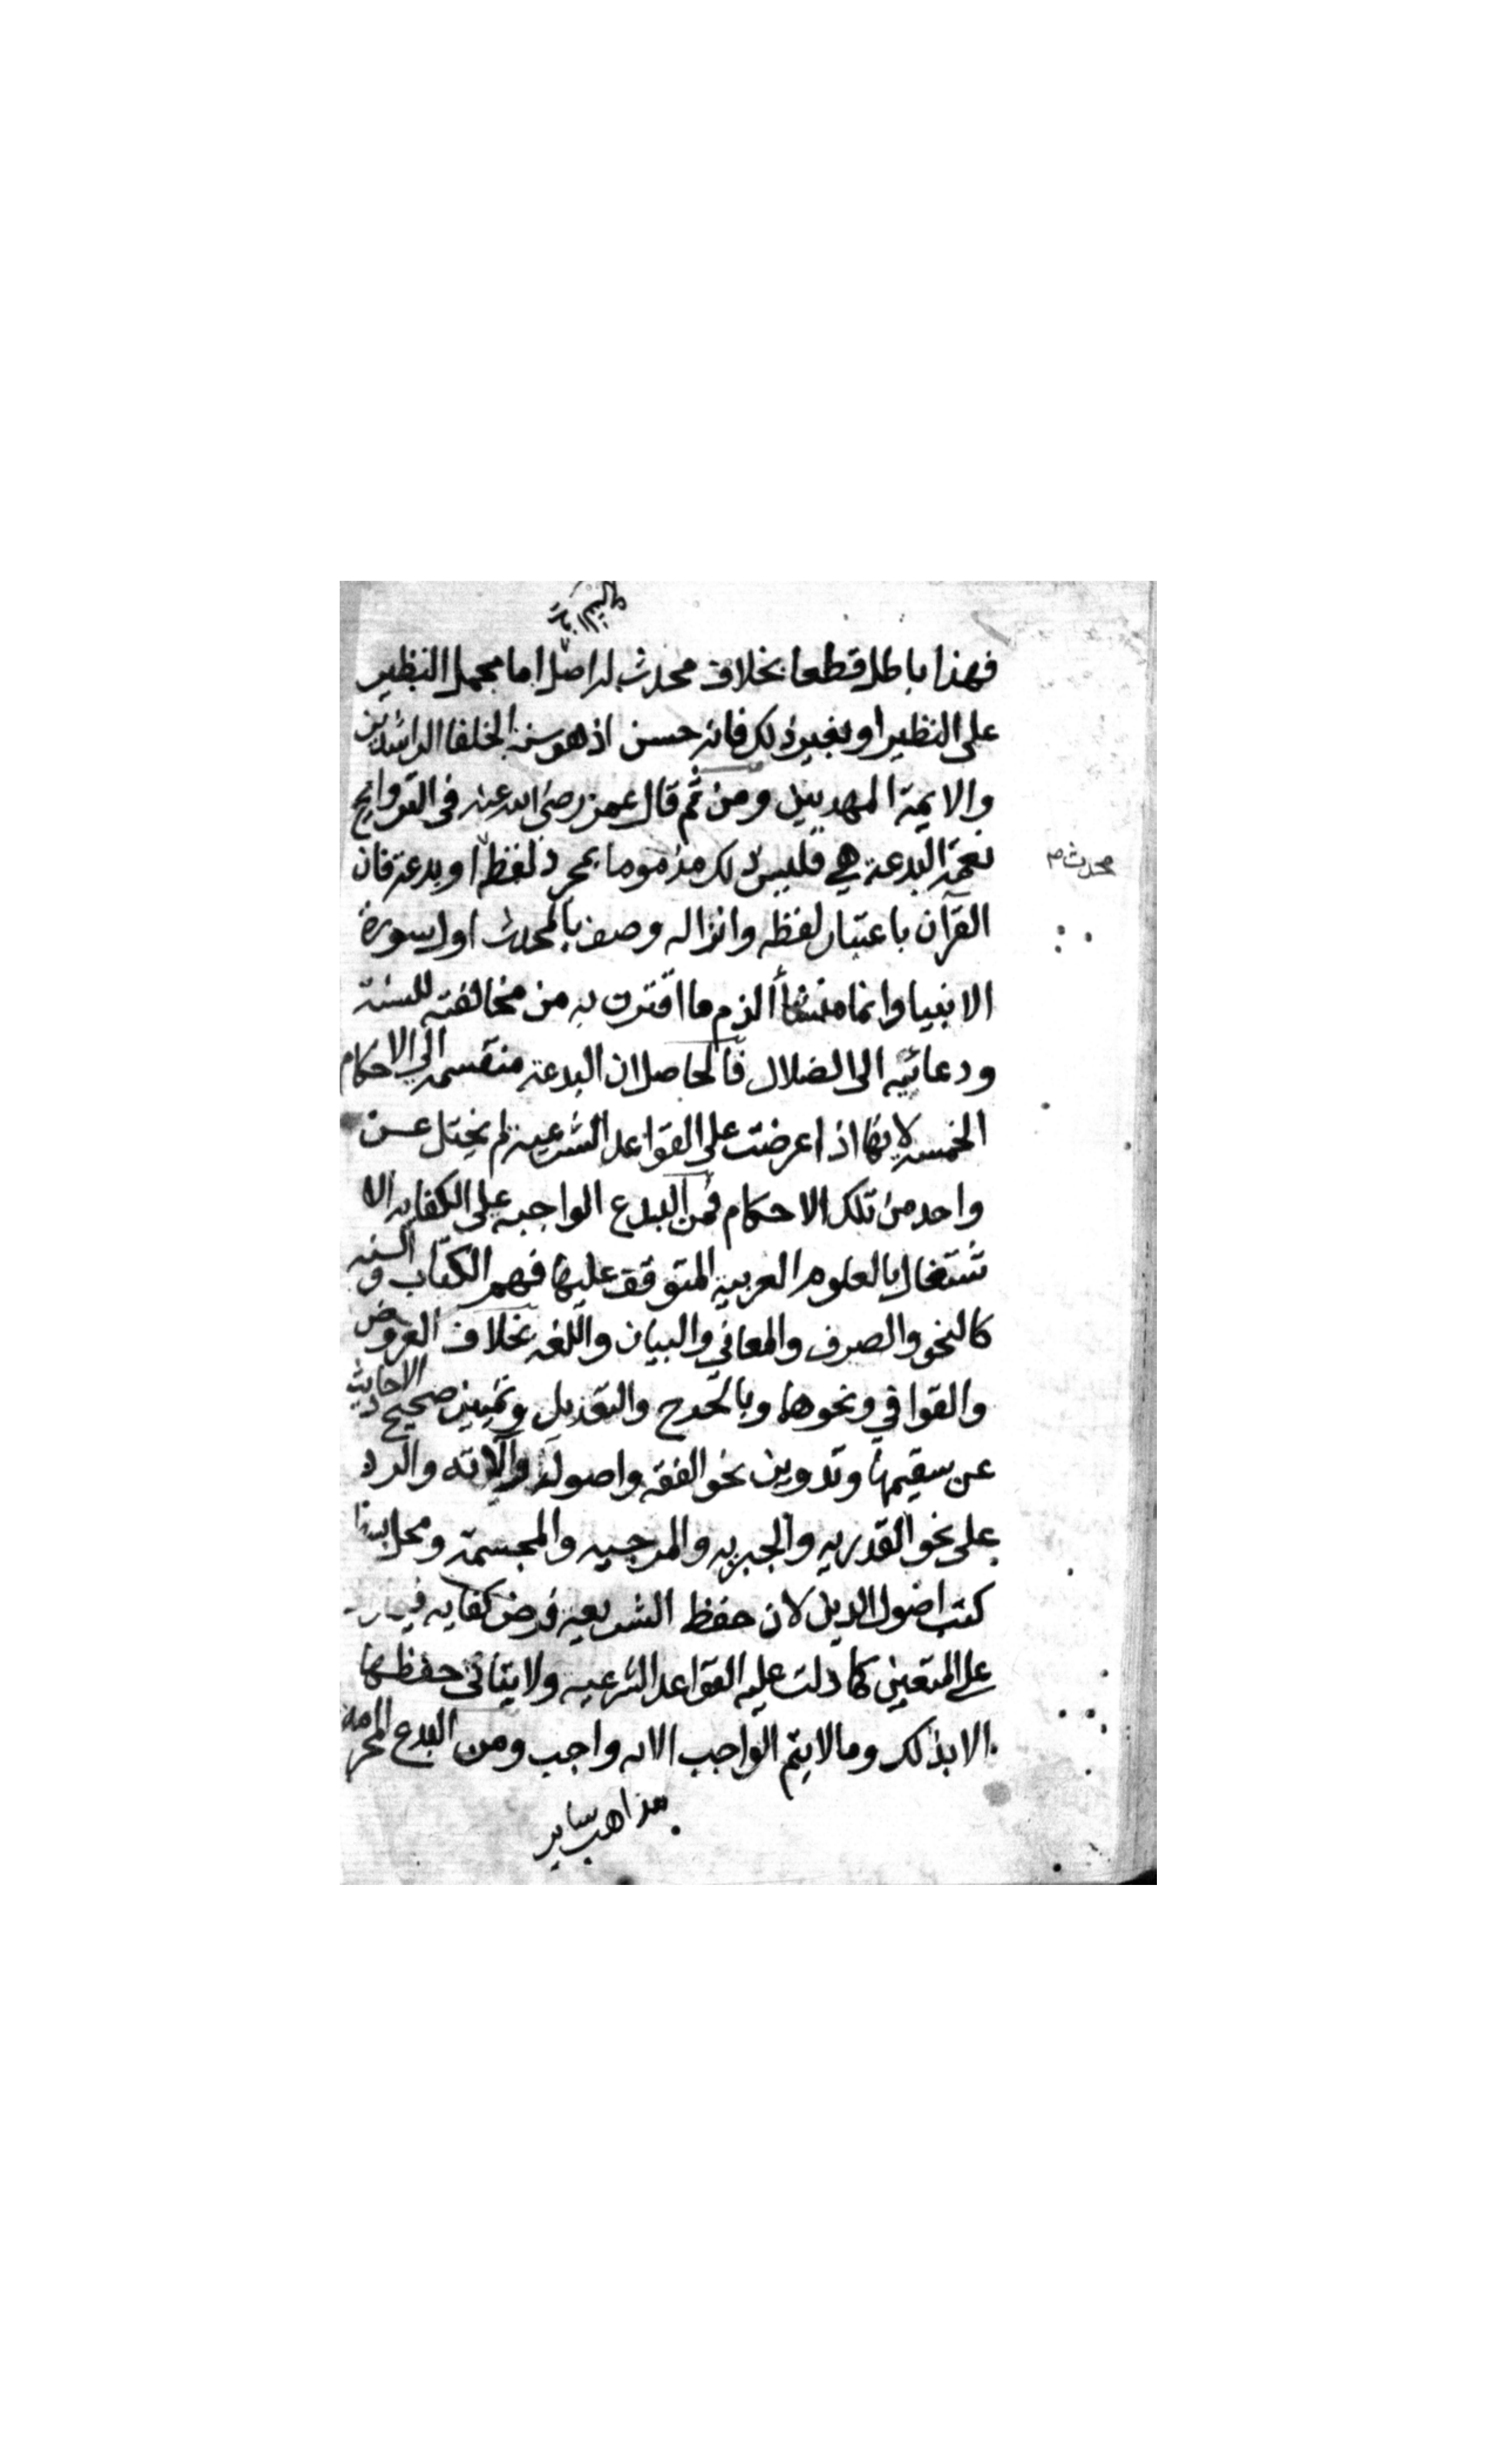 فهذا باطل قطعا بخلاف محدث له اصل اما بحمل النظير
على النظير او بغير ذلك فانه حسن اذ هو سنة الخلفا الراشدين
والايمة المهديين ومن ثم قال عمر رضى الله عنه فى التراويح
نعمة البدعة هي فليس ذلك مذموما بمجرد لفظ او بدعة فان
محدث م
القرآن باعتبار لفظه وانزاله وصف بالمحدث اول سورة
الانبيا وانما منشأ الذم ما اقترن به من مخالفته للسنة
ودعائيه الى الضلال فالحاصل ان البدعة منقسمه الى الاحكام
الخمسه لانها اذا عرضت على القواعد الشرعيه لم يختل عن
واحد من تلك الاحكام فمن البدع الواجبه على الكفايه الا
شتغال بالعلوم العربيه المتوقف عليها فهم الكتاب والسنه
كالنحو والصرف والمعاني والبيان واللغه بخلاف العروض
والقوافي ونحوها وبالجرح والتعديل وتمييز صحيح الاحاديث
عن سقيمها وتدوين نحو الفقه واصوله والاته والرد
على نحو القدريه والجبريه والمرجيه والمجسمة ومحل بسط
كتب اصول الدين لان حفظ الشريعه فرض كفايه فيما زاد
على المتعين كما دلت عليه القواعد الشرعيه ولا يتاتى حفظها
الا بذلك وما لا يتم الواجب الا به واجب ومن البدع المحرمة
مذاهب ساير